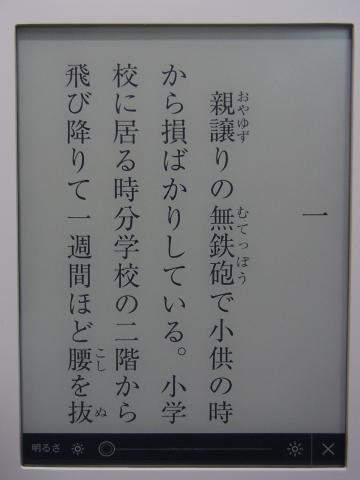 一
親譲りの無鉄砲で小供の時
おやゆず
むてっぽう
から損ばかりしている。小学
校に居る時分学校の二階から
飛び降りて一週間ほど腰を抜
こし
ぬ
明るさ